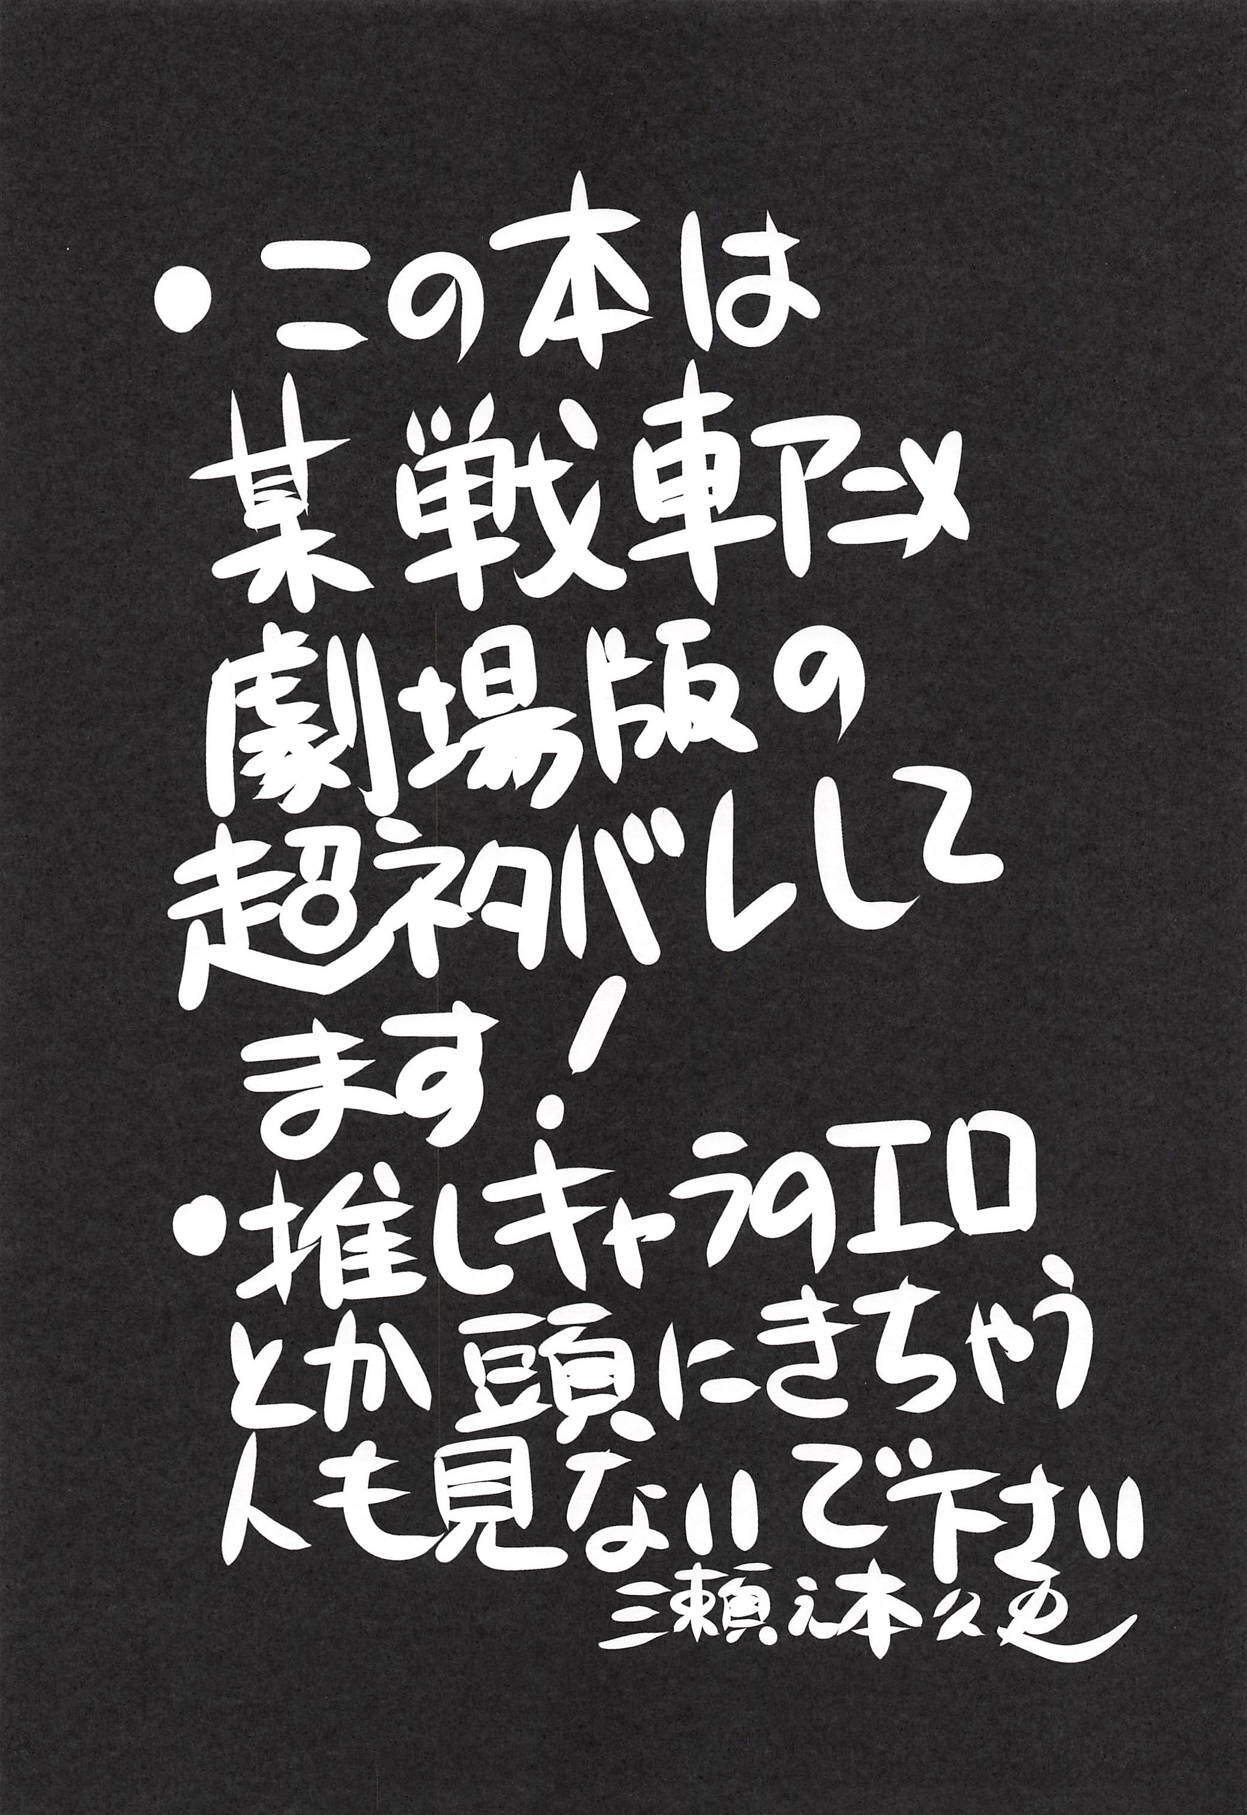 ・この本は
某戦車アニメ
劇場版の
超ネタバレして
ます!
・推しキャラのエロ
とか頭にきちゃう
人も見ないで下さい
三瀬之本久史